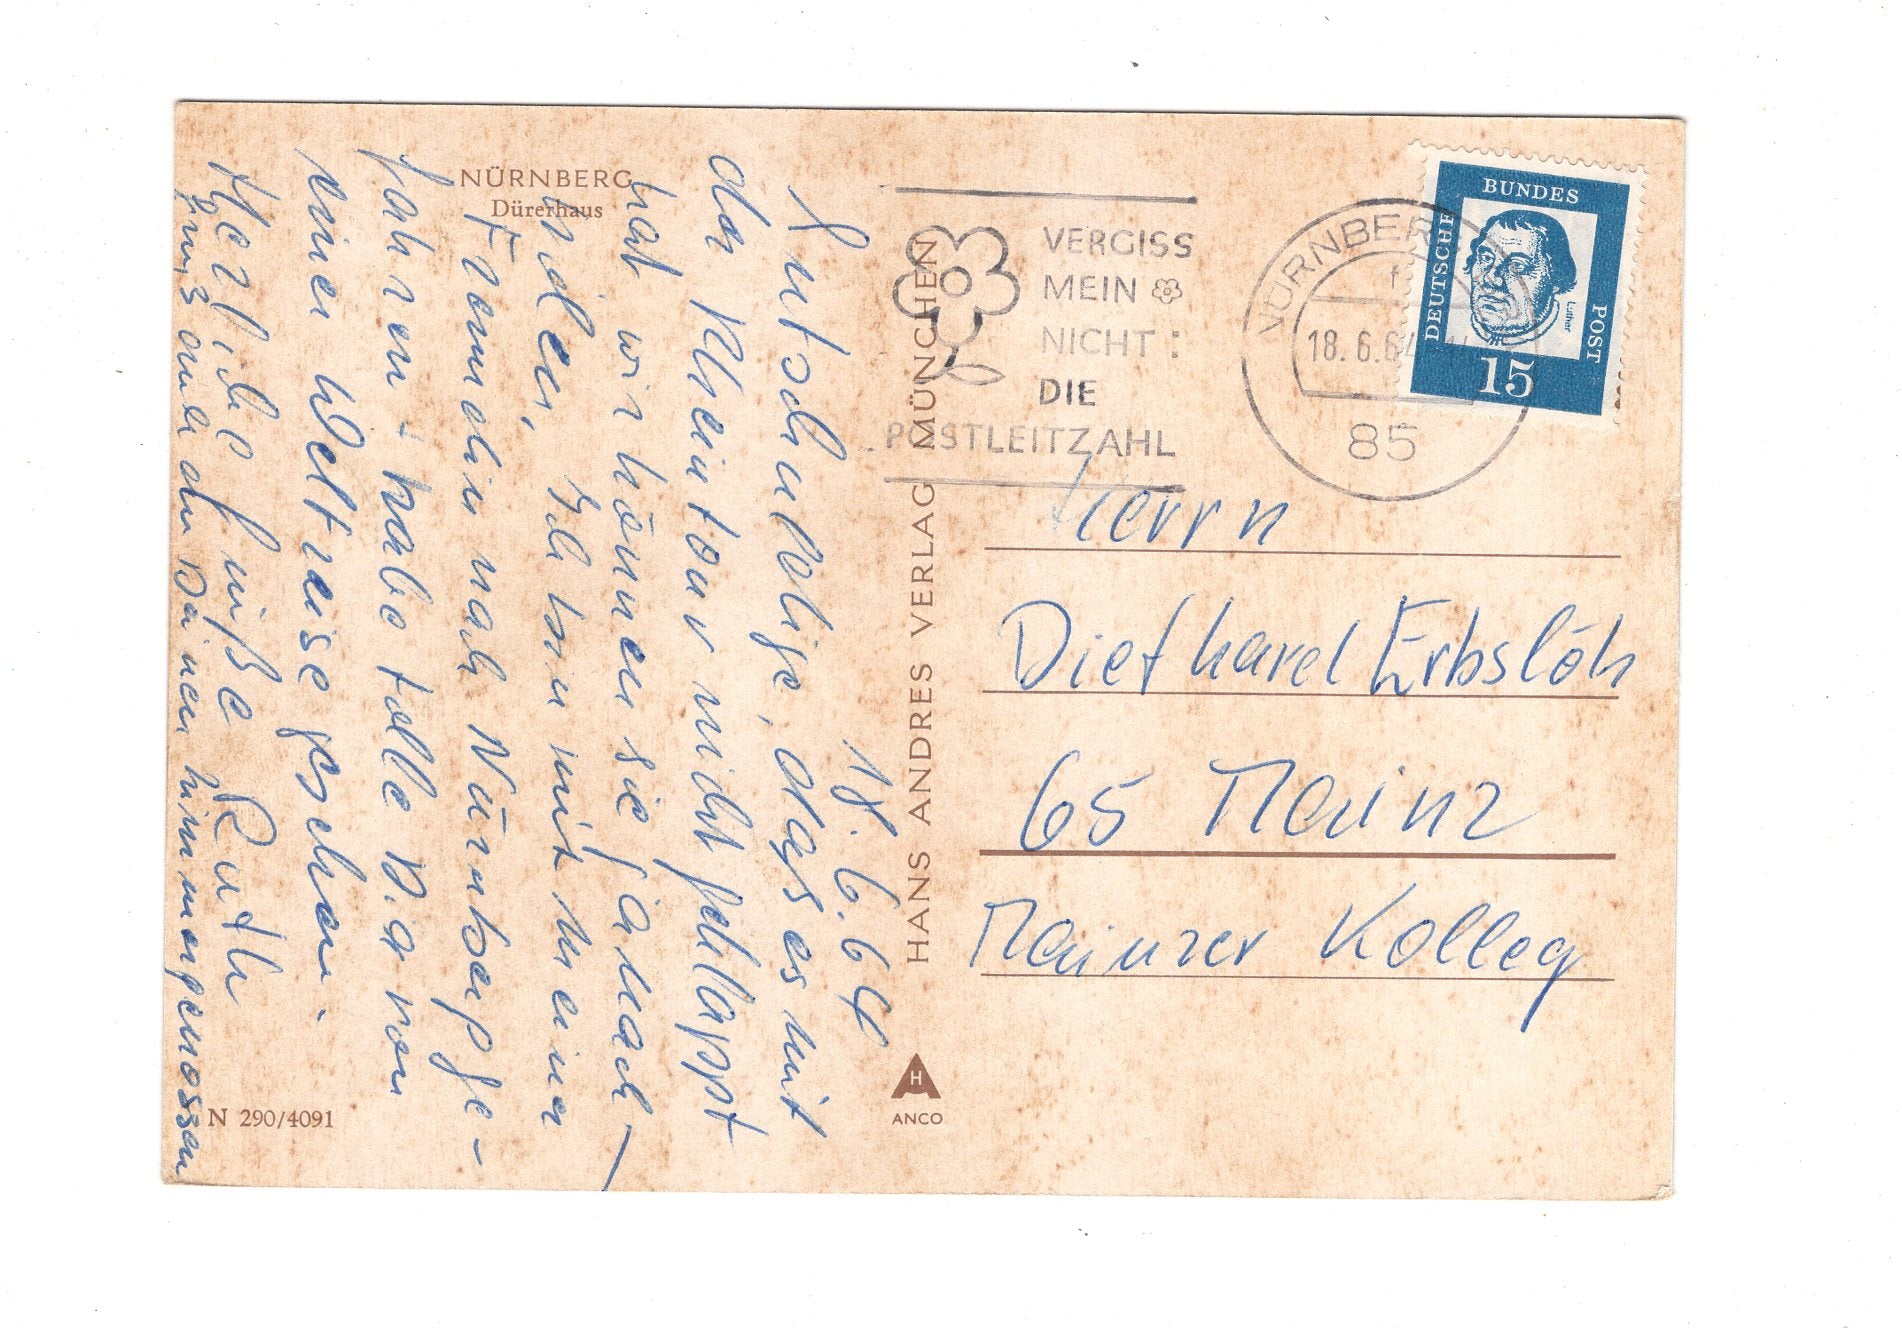 NÜRNBERG
Dürerhaus
18.6.64
Entschuldige, dass es mit
der Kleintour nicht geklappt
hat, wir können sie ja nach-
holen. Ich bin mit meiner
Freundin nach Nürnberg ge-
fahren + habe tolle Dia von
einer Weltreise gesehen.
Herzliche Grüße Ruth
Grüß auch die Deinen
N 290/4091
HANS ANDRES VERLAG MÜNCHEN
H
ANCO
VERGISS
MEIN
NICHT:
DIE
POSTLEITZAHL
NÜRNBERG
f
18.6.64
85
DEUTSCHE
BUNDES
POST
Luther
15
Herrn
Diethard Erbslöh
65 Mainz
Mainzer Kolleg